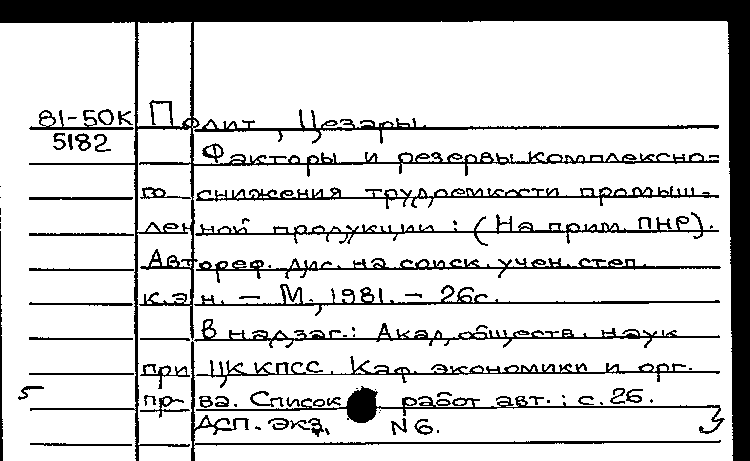 81-50К Полит, Цезары.
5182
Факторы и резервы комплексно=
го снижения трудоемкости промыш=
ленной продукции : (На прим. ПНР).
Автореф. дис. на соиск. учен. степ.
к.э.н. – М., 1981. – 26с.
В надзаг.: Акад. обществ. наук
при ЦК КПСС. Каф. экономики и орг.
5 пр-ва. Список работ авт.: с.26.
Асп. экз. N6.